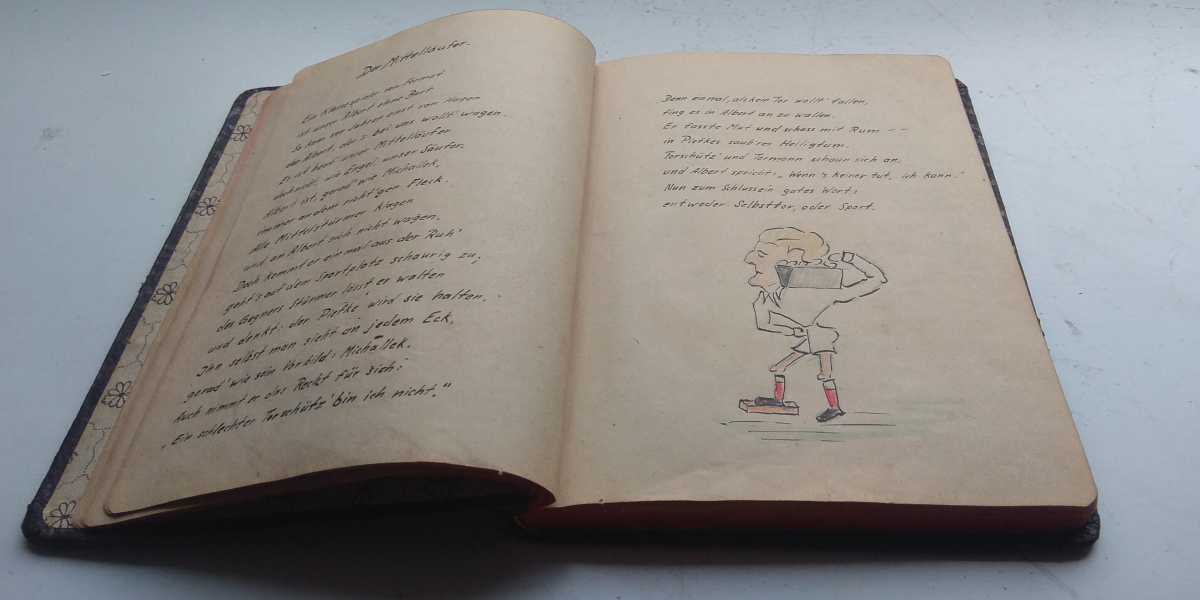 Der Mittelläufer.
Ein Kleesp oder von Format
ist unser Albert ohne Bart.
So kam vor Jahren einst von Hagen
der Albert, der's bei uns wollt' wagen.
Er ist heut unser Mittelläufer
das heißt, wie Ergel: unser Säufer.
Albert ist, gerad' wie Michallek,
immer an dem richt'gen Fleck.
Alle Mittelstürmer klagen
und an Albert sich nicht wagen.
Doch kommt er einmal aus der Ruh'
geht's auf dem Sportplatz schaurig zu;
des Gegners Stürmer lässt er walten
und denkt: der Pietke wird sie halten.
Ihn selbst man sieht an jedem Eck,
gerad' wie sein Vorbild: Michallek.
Auch nimmt er eins Recht für sich:
„Ein schlechter Torschütz' bin ich nicht."
Denn einmal, als kein Tor wollt' fallen,
fing es in Albert an zu wallen.
Er fasste Mut und schoss mit Rum --
in Pietkes saub'res Heiligtum.
Torschütz' und Tormann schaun sich an,
und Albert spricht: „Wenn's keiner tut, ich kann."
Nun zum Schluss ein gutes Wort:
entweder Selbsttor, oder Sport.